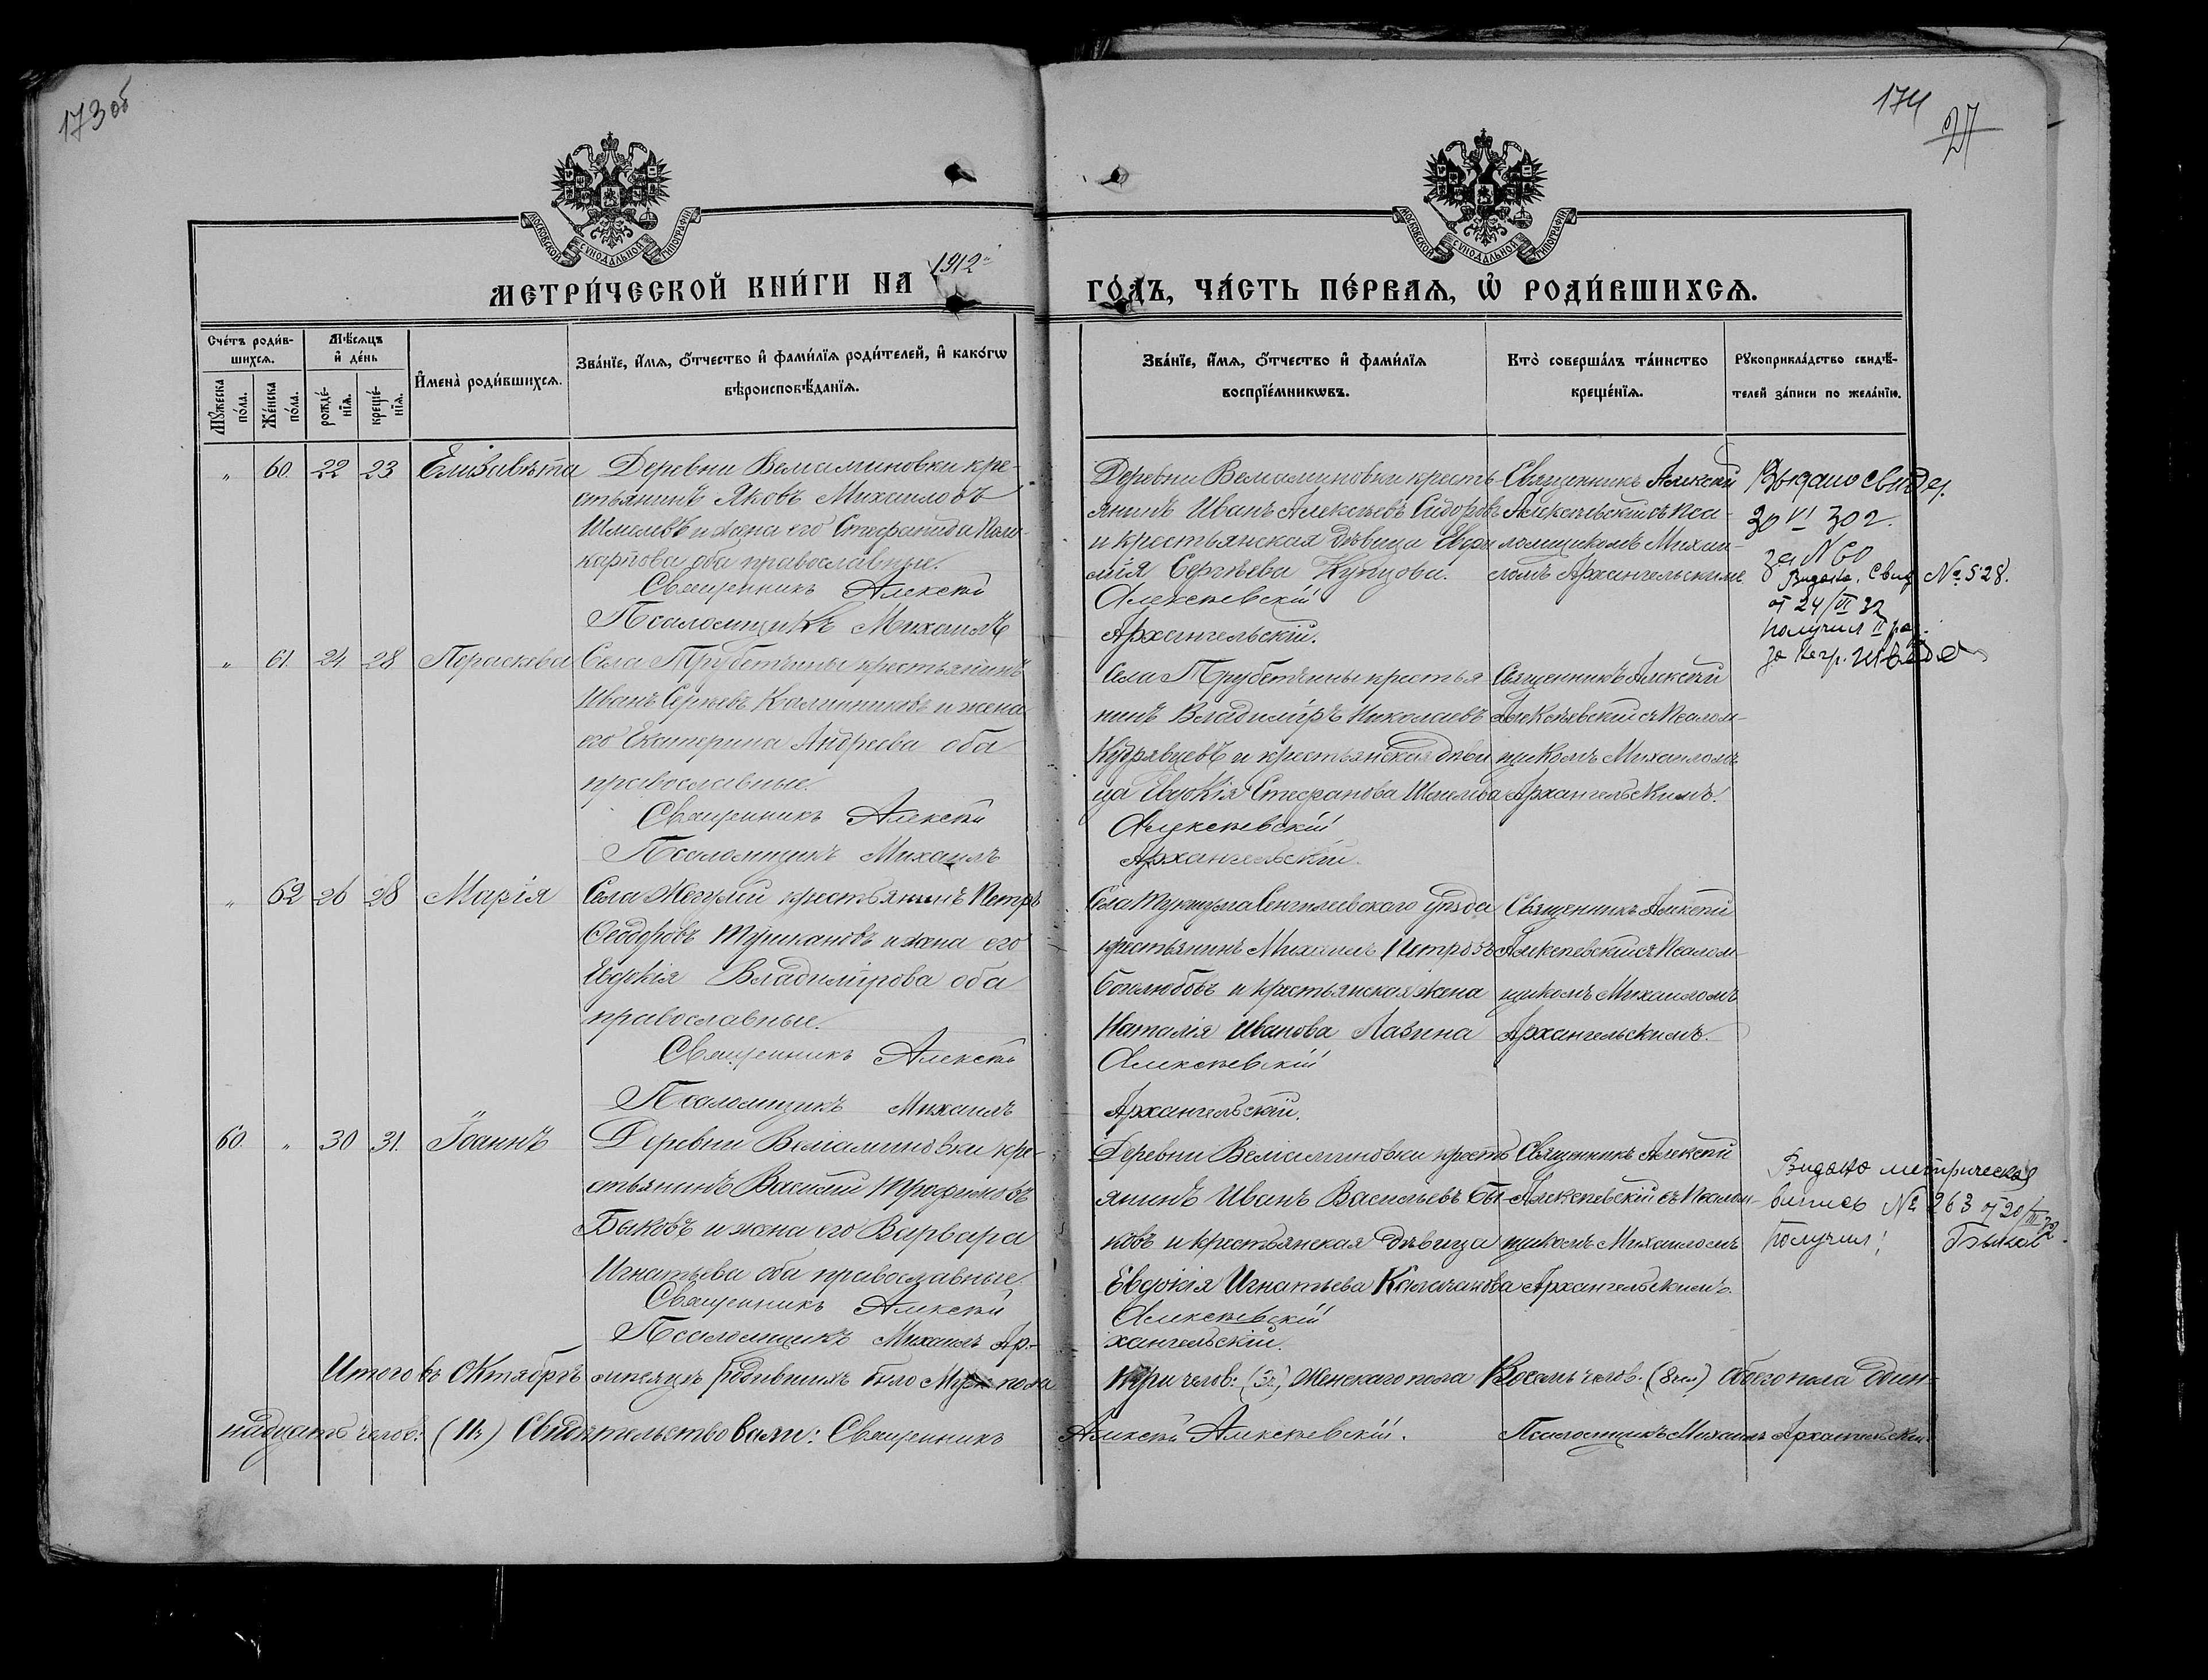 173 об
174
27
МОСКОВСКОЙ СУНОДАЛЬНОЙ ТИПОГРАФІИ
МОСКОВСКОЙ СУНОДАЛЬНОЙ ТИПОГРАФІИ
МЕТРИ́ЧЕСКОЙ КНИ́ГИ НА 1912 ГО́ДЪ, ЧА́СТЬ ПЕ́РВАѦ, Ѡ҆ РОДИ́ВШИХСѦ.
Сче́тъ роди́в-
шихсѧ.
Мꙋ́жеска по́ла.
Же́нска по́ла.
Мѣ́сѧцъ
и҆ де́нь
рожде́-
нїѧ.
креще́-
нїѧ.
И҆мена̀ роди́вшихсѧ.
Зва́нїе, и҆́мѧ, ѻ҆́тчество и҆ фами́лїѧ роди́телей, и҆ како́гѡ
вѣроисповѣ́данїѧ.
Зва́нїе, и҆́мѧ, ѻ҆́тчество и҆ фами́лїѧ
воспрїе́мникѡвъ.
Кто̀ соверша́лъ та́инство
креще́нїѧ.
Рꙋкоприкла́дство свидѣ́-
телей за́писи по жела́нїю.
„ 60. 22 23 Елизавѣта
Деревни Вельяминовки кре-
стьянинъ Яковъ Михаиловъ
Шмелевъ и жена его Стефанида Поли-
карпова оба православные.
Священникъ Алексѣй
Псаломщикъ Михаилъ
Деревни Вельяминовки кресть-
янинъ Иванъ Алексѣевъ Сидоровъ
и крестьянская дѣвица Евфи
мія Сергѣева Купцова.
Алексѣевскій
Архангельскій.
Священникъ Алексѣй
Алексѣевскій съ Пса-
ломщикомъ Михаи-
ломъ Архангельскимъ
Выдано свидет.
30 VI 302.
за N 60
Видано. Свид № 528.
от 24/VI 32
Получил II раз.
„ 61. 24 28 Параскева
Села Трубетчины крестьянинъ
Иванъ Сергѣевъ Калинниковъ и жена
его Екатерина Андреева оба
православные.
Священникъ Алексѣй
Псаломщикъ Михаилъ
Села Трубетчины крестья-
нинъ Владиміръ Николаевъ
Кудрявцевъ и крестьянская дѣви
ца Евдокія Стефанова Шмелева
Алексѣевскій
Архангельскій.
Священникъ Алексѣй
Алексѣевскій съ Псалом-
щикомъ Михаиломъ
Архангельскимъ.
„ 62 26 28 Марія
Села Жегулей крестьянинъ Петръ
Ѳеодоровъ Турикановъ и жена его
Евдокія Владимірова оба
православные.
Священникъ Алексѣй
Псаломщикъ Михаилъ
Села Тукшума Сенгилеевскаго уѣзда
крестьянинъ Михаилъ Петровъ
Боголюбовъ и крестьянская жена
Наталія Иванова Лазина
Алексѣевскій
Архангельскій.
Священникъ Алексѣй
Алексѣевскій съ Псалом-
щикомъ Михаиломъ
Архангельскимъ.
60. „ 30 31. Іоаннъ
Деревни Вельяминовки кре-
стьянинъ Василій Трофимовъ
Быковъ и жена его Варвара
Игнатьева оба православные.
Священникъ Алексѣй
Псаломщикъ Михаилъ Ар-
Деревни Вельяминовки кресть
янинъ Иванъ Васильевъ Бы-
ковъ и крестьянская дѣвица
Евдокія Игнатьева Калачанова
Алексѣевскій
хангельскій.
Священникъ Алексѣй
Алексѣевскій съ Псалом-
щикомъ Михаиломъ
Архангельскимъ.
Видано метрическая
випись № 263 от 20/III 32.
Получил! Быков
Итого въ Октябрѣ мѣсяцѣ родившихъ было Муж. пола три челов: (3.) Женскаго пола Восемь челов. (8ми) Обоего пола Один-
надцать челов: (11ъ) Свидѣтельствовали: Священникъ Алексѣй Алексѣевскій. Псаломщикъ Михаилъ Архангельскій.